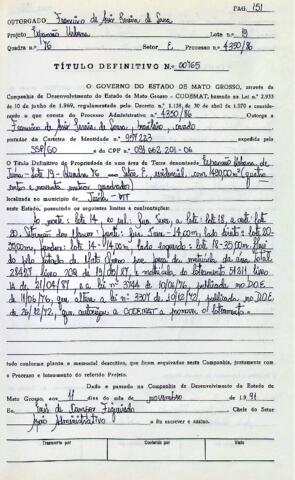 PAG. 151
OUTORGADO Francisco de Assis Pereira de Sousa
Projeto Expansão Urbana Lote n.º 19
Quadra n.º 176 Setor E Processo n.º 4350/86
TÍTULO DEFINITIVO N.º 00765
O GOVERNO DO ESTADO DE MATO GROSSO, através da
Companhia de Desenvolvimento do Estado de Mato Grosso - CODEMAT, baseado na Lei n.º 2.933
de 10 de junho de 1.969, regulamentada pelo Decreto n.º 1.138 de 30 de abril de 1.970 e considerando
o que consta do Processo Administrativo n.º 4350/86 Outorga a
Francisco de Assis Pereira de Sousa, brasileiro, casado
portador da Carteira de Identidade n.º 957223 expedida pela
SSP/60 e do CPF n.º 091 662 201-06
O Título Definitivo de Propriedade de uma área de Terra denominada Expansão Urbana de
Juina - Lote 19 - Quadra 176 - Setor E, residencial, com 490,00 m² (quatro
centos e noventa metros quadrados)
localizada no município de Juína - MT
neste Estado, possuindo os seguintes limites e confrontações:
Ao norte: lote 14, ao sul: Rua
Lote 18, a oeste: lote
20. frente: Rua 14,00m; lado direito: lote 20-
35,00m; fundos: lote 14 - 14,00m; lado esquerdo: lote 18 - 35,00m
pelo Estado de Mato Grosso por força da matrícula da área total
28487 livro 2 de 19/08/87 e matrícula do loteamento 51811 livro
de 21/04/87 e a lei nº 3744 de 10/06/76, publicada no D.O.E.
11/06/76, que altera a lei nº 3307 de 10/12/72 publicada no D.O.E
de 26/12/72, que autorizou a CODEMAT a promover o loteamento.
tudo conforme planta e memorial descritivo, que ficam arquivados nesta Companhia, juntamente com
o Processo e loteamento do referido Projeto.
Dado e passado na Companhia de Desenvolvimento do Estado de
Mato Grosso, aos 11 dias do mês de novembro de 1.991
Eu, Figueiredo Chefe do Setor
Apoio Administrativo o fiz escrever e assino.
Transcrito por Conferido por Visto